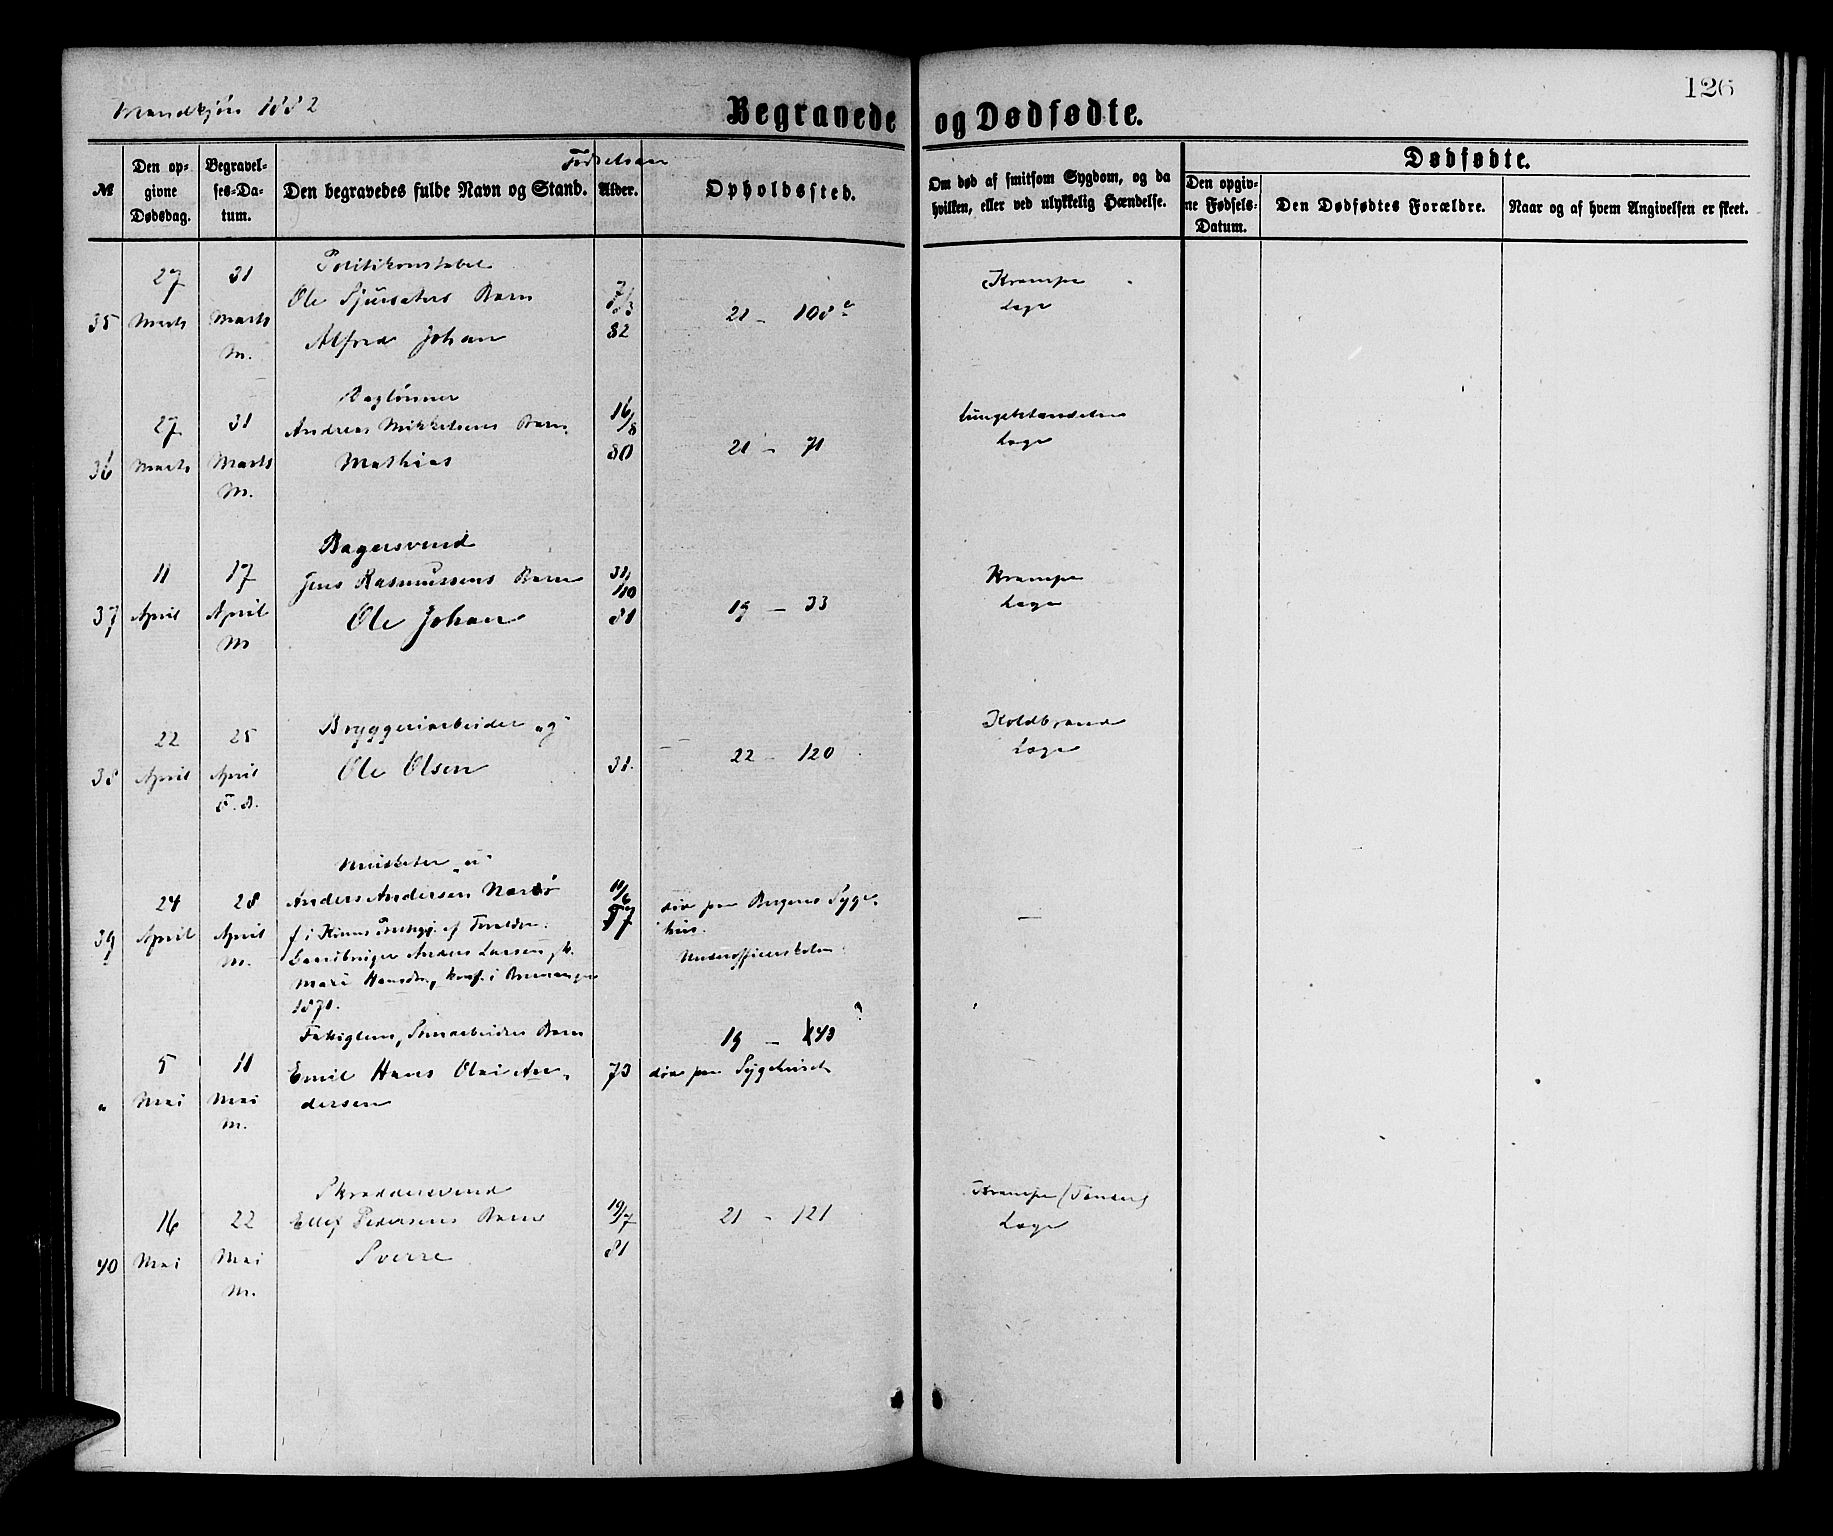 Mandkjøn 1882
Begravede og Dødfødte.
126
№
Den opgivne Dødsdag.
Begravelses-Datum.
Den begravedes fulde Navn og Stand.
Fødselsaar
Alder.
Opholdssted.
Om død af smitsom Sygdom, og da hvilken, eller ved ulykkelig Hændelse.
Dødfødte.
Den opgivne Fødsels-Datum.
Den Dødfødtes Forældre.
Naar og af hvem Angivelsen er skeet.
35
27 Marts
31 Marts M.
Politikonstabel
Ole Sjursæters Barn
Alfred Johan
82
21 – 108
Krampe
Læge
36
27 Marts
31 Marts M.
Daglønner
Andreas Mikkelsens Barn
Mathias
16/8 80
21 – 71
Lungebetændelse
Læge
37
11 April
17 April M
Bagersvend
Jens Rasmussens Barn
Ole Johan
31/10 81
19 – 33
Krampe
Læge
38
22 April
25 April F. S.
Bryggeriarbeider „g“
Ole Olsen
31.
22 – 120
Koldbrand
Læge
39
24 April
28 April M.
Musketer „u“
Anders Andersen
f. i Kinns Præstegj. af Forældre:
Gaardbruger Anders Larsen, k.
Mari Hansdtr, konf. i Bremanger
1871.
død paa Bergens Syge-
hus.
Underofficerskolen
–
„
5 Mai
11 Mai M.
Fattiglem, Stenarbeiders Barn
Emil Hans Olai An-
dersen
73
19 – 43 ?
død paa Sygehuset
40
16 Mai
22 Mai M.
Skræddersvend
Ellef Pedersens Barn
Sverre
19/7 81
21 – 121
Krampe (Tænder)
Læge